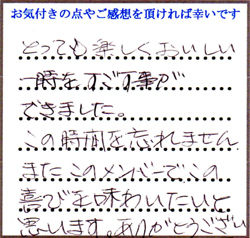 お気付きの点やご感想を頂ければ幸いです
とっても楽しくおいしい
一時をすごす事が
できました。
この時間を忘れません
またこのメンバーでこの
喜びを味わいたいと
思います。ありがとうござい